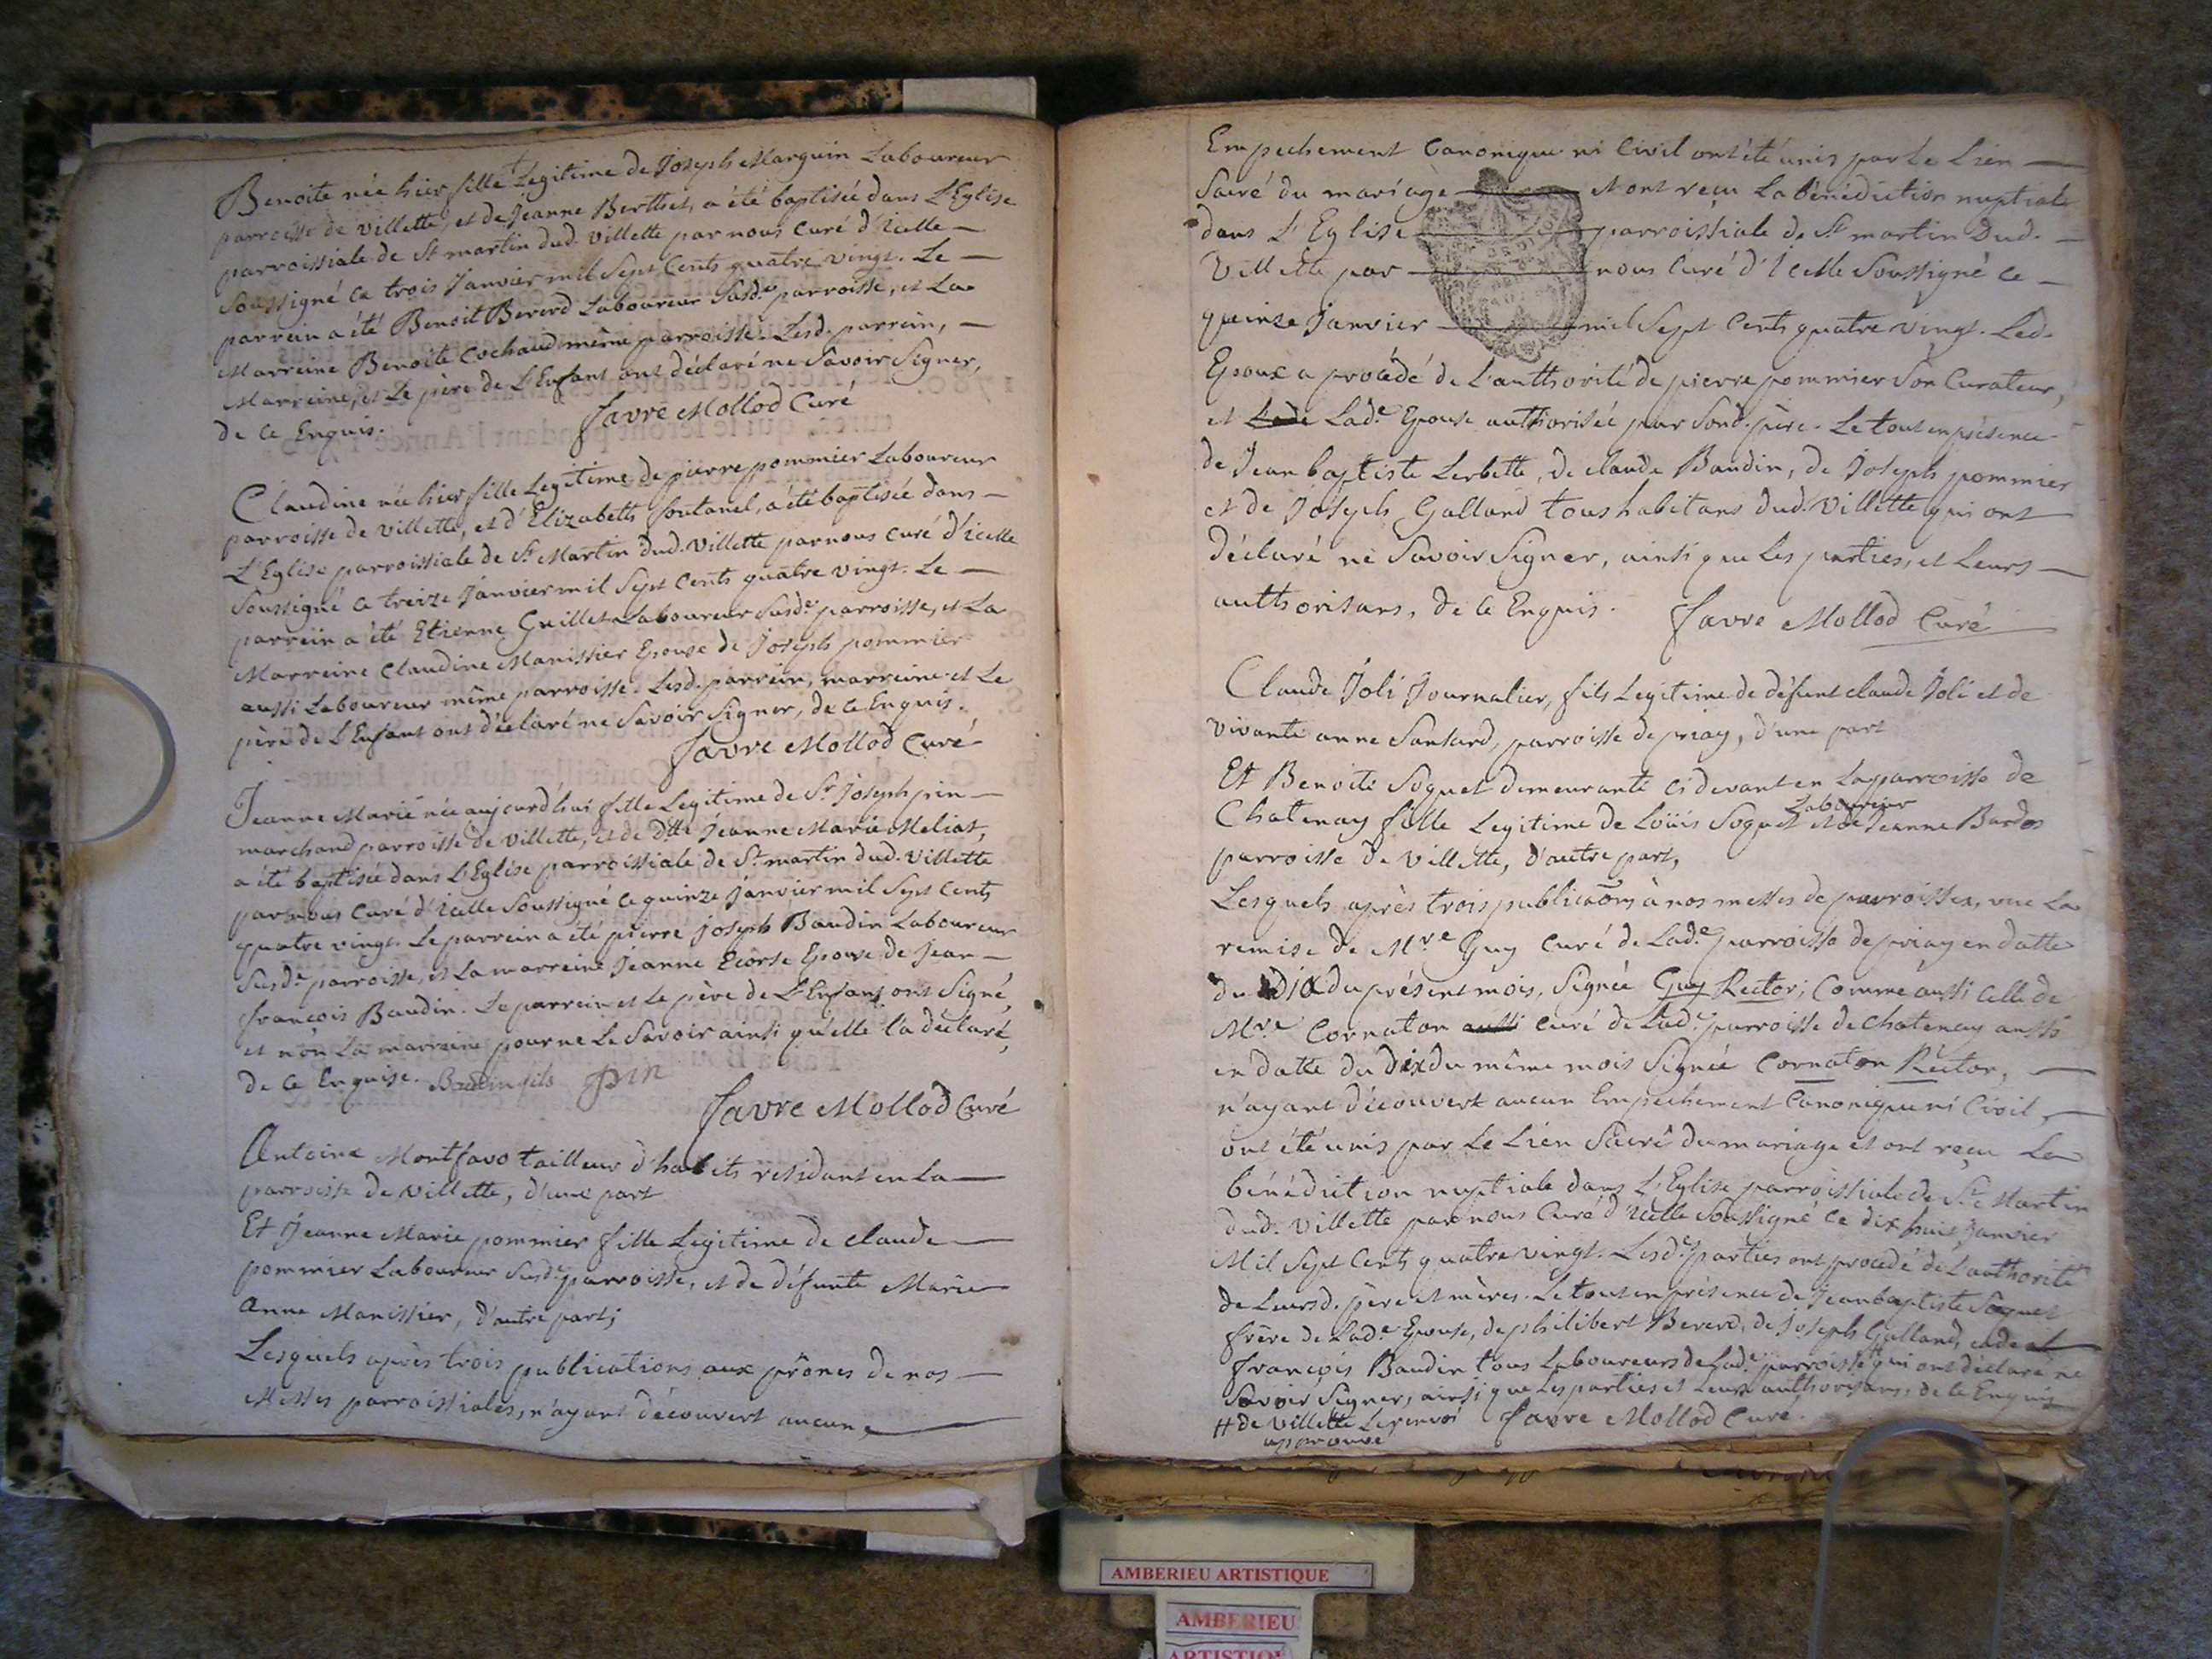 Benoite née hier fille Legitime de Joseph Marguin Laboureur
parroisse de villette, et de Jeanne Berthet, a été baptisée dans L'Eglise
parroissiale de St martin dud. villette par nous Curé d'icelle —
Soussigné ce trois Janvier mil Sept Cents quatre vingt. Le —
parrein a été Benoit Bererd Laboureur Susde parroisse, et La
Marreine Benoite Cochaud même parroisse. Lesd. parrein, —
Marreine, et Le père de L'Enfant ont déclaré ne Savoir Signer,
de ce Enquis. Favre Mollod Curé
Claudine née hier fille Legitime de pierre pommier Laboureur
parroisse de villette, et d'Elizabeth fontanel, a été baptisée dans —
L'Eglise parroissiale de St Martin dud. villette par nous Curé d'icelle
Soussigné ce treize Janvier mil Sept Cents quatre vingt. Le —
parrein a été Etienne Grillet Laboureur Susde parroisse, et La
Marreine Claudine Manissier Epouse de Joseph pommier
aussi Laboureur même parroisse. Lesd. parrein, marreine et Le
père de L'Enfant ont déclaré ne Savoir Signer, de ce Enquis.
Favre Mollod Curé
Jeanne Marie née aujourd'hui fille Legitime de Sr Joseph pin —
marchand parroisse de villette, et de Dlle Jeanne Marie Meliat,
a été baptisée dans L'Eglise parroissiale de St martin dud. villette
par nous Curé d'icelle Soussigné ce quinze Janvier mil Sept Cents
quatre vingt. Le parrein a été pierre joseph Baudin Laboureur
Susde parroisse, et La marreine Jeanne Ecorse Epouse de Jean —
françois Baudin. Le parrein et Le père de L'Enfant ont Signé,
et non La marreine pour ne Le Savoir ainsi qu'elle l'a déclaré,
de ce Enquise. Baudin fils pin
Favre Mollod Curé
Antoine Montfavo tailleur d'habits residant en La —
parroisse de villette, d'une part
Et Jeanne Marie pommier fille Legitime de Claude —
pommier Laboureur Susde parroisse, et de défunte Marie
anne Manissier, d'autre part;
Lesquels après trois publications aux prônes de nos —
Messes parroissiales, n'ayant découvert aucun —
Empechement Canonique ni Civil ont été unis par Le Lien —
Sacré du mariage — et ont reçu La bénédiction nuptiale
dans L'Eglise — parroissiale de St martin Dud. —
Villette par — nous Curé d'icelle Soussigné ce —
quinze Janvier — mil Sept Cents quatre vingt. Led.
Epoux a procédé de L'authorité de pierre pommier Son Curateur,
et Lade Epouse authorisée par Sond. père. Le tout en présence
de Jean baptiste Lerbette, de claude Baudin, de Joseph pommier
et de Joseph Galland tous habitans dud. Villette qui ont
déclaré ne Savoir Signer, ainsi que Les parties, et Leurs —
authorisans, de ce Enquis. Favre Mollod Curé
Claude Joli Journalier, fils Legitime de défunt claude Joli et de
vivante anne Santard, parroisse de priay, d'une part
Et Benoite Soquet demeurante ci devant en La parroisse de
Chatenay fille Legitime de Loüis Soquet Laboureur et de Jeanne Bardos
parroisse de villette, d'autre part,
Lesquels après trois publicaōns à nos messes de parroisses, vue La
remise de Mre Guy Curé de Lade parroisse de priay en datte
du DIX du présent mois, Signée Guy Rector; Comme aussi celle de
Mre Cornaton aussi Curé de Lade parroisse de Chatenay aussi
en datte du dix du même mois Signée Cornaton Rector, —
n'ayant découvert aucun Empechement Canonique ni Civil, —
ont été unis par Le Lien Sacré du mariage et ont reçu La
bénédiction nuptiale dans L'Eglise parroissiale de St Martin
dud. villette par nous Curé d'icelle Soussigné ce dix huit Janvier
Mil Sept Cents quatre vingt. Lesde parties ont procédé de L'authorité
de Leursd. père et mères. Le tout en présence de Jean baptiste Soquet
frère de Lade Epouse, de philibert Bererd, de Joseph Galland, et de
françois Baudin tous Laboureurs de Lade parroisse # qui ont déclaré ne
Savoir Signer, ainsi que Les parties et Leurs authorisans, de ce Enquis
# de villette Le renvoi Favre Mollod Curé.
approuvé
AMBERIEU ARTISTIQUE
AMBERIEU
ARTISTIQUE